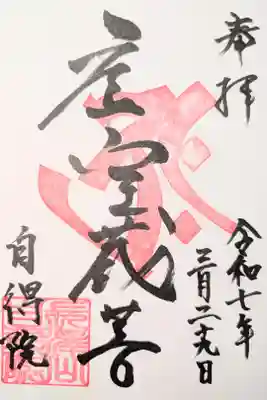 奉拝
令和七年
三月二十九日
虚空蔵菩
自得院